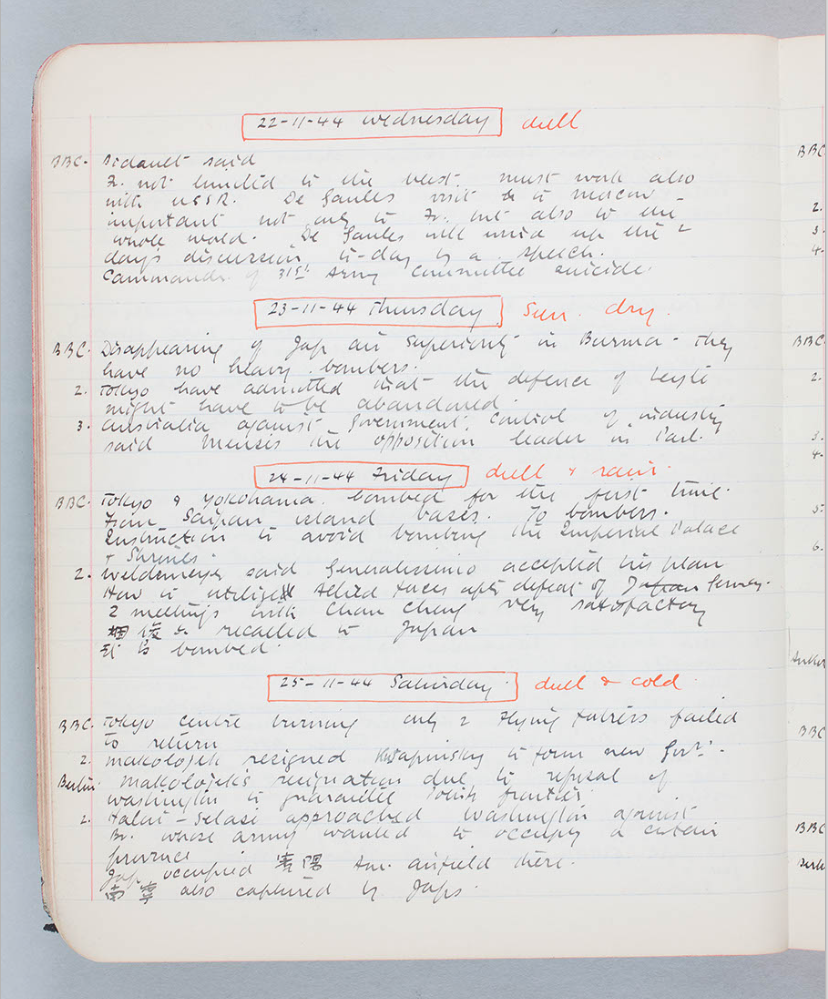 22-11-44 Wednesday dull
BBC. Bidault said
Fr. not limited to the west. must work also
with USSR. De Gaulles visit to Moscow
important not only to Fr. but also to the
whole world. De Gaulles will wind up the 2
days discussion to-day by a speech.
Commander of 31st Army committed suicide.
23-11-44 Thursday Sun. dry.
BBC. Disappearing of Jap air superiority in Burma - they
have no heavy bombers.
2. Tokyo have admitted that the defence of Leyte
might have to be abandoned.
3. Australia against Government control of industry
said Menzis the opposition leader in Parl.
24-11-44 Friday dull & rain.
BBC. Tokyo & Yokohama bombed for the first time
from Saipan island bases. 70 bombers.
Instruction to avoid bombing the Imperial Palace
& Shrines.
2. Weldemeyer said Generalissimo accepted his plan
How to utilize Allied forces after defeat of Germany.
2 meetings with Chan Cheng very satisfactory
recalled to Japan
bombed.
25-11-44 Saturday dull & cold
BBC. Tokyo centre burning only 2 Flying fortress failed
to return
2. Makolojek resigned Kwapinsky to form new Govt.
Berlin. Makolojek's resignation due to refusal of
Washington to guarantee Polish frontier.
2. Halai-Selasi approached Washington against
Br. whose army wanted to occupy a certain
province
Jap. occupied Am. airfield there.
南寧 also captured by Japs.
BBC
2.
3.
4.
BBC
2.
3.
4.
5.
6.
BBC
BBC